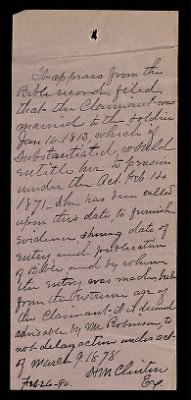 It appears from the
Bible record filed,
that the Claimant was
married to the soldier
Jan 16. 1813, which if
Substantiated, would
entitle her to pension
under the Act Feb. 14
1871. She has been called
upon this date, to furnish
evidence showing date of
entry and publication
of Bible, and by whom
the entry was made, but
from the extreme age of
the Claimant it is deemed
advisable by Mr. Robinson, to
not delay action under act
of March 9. 1878
Feb 26-90. H M Clinton
Ex